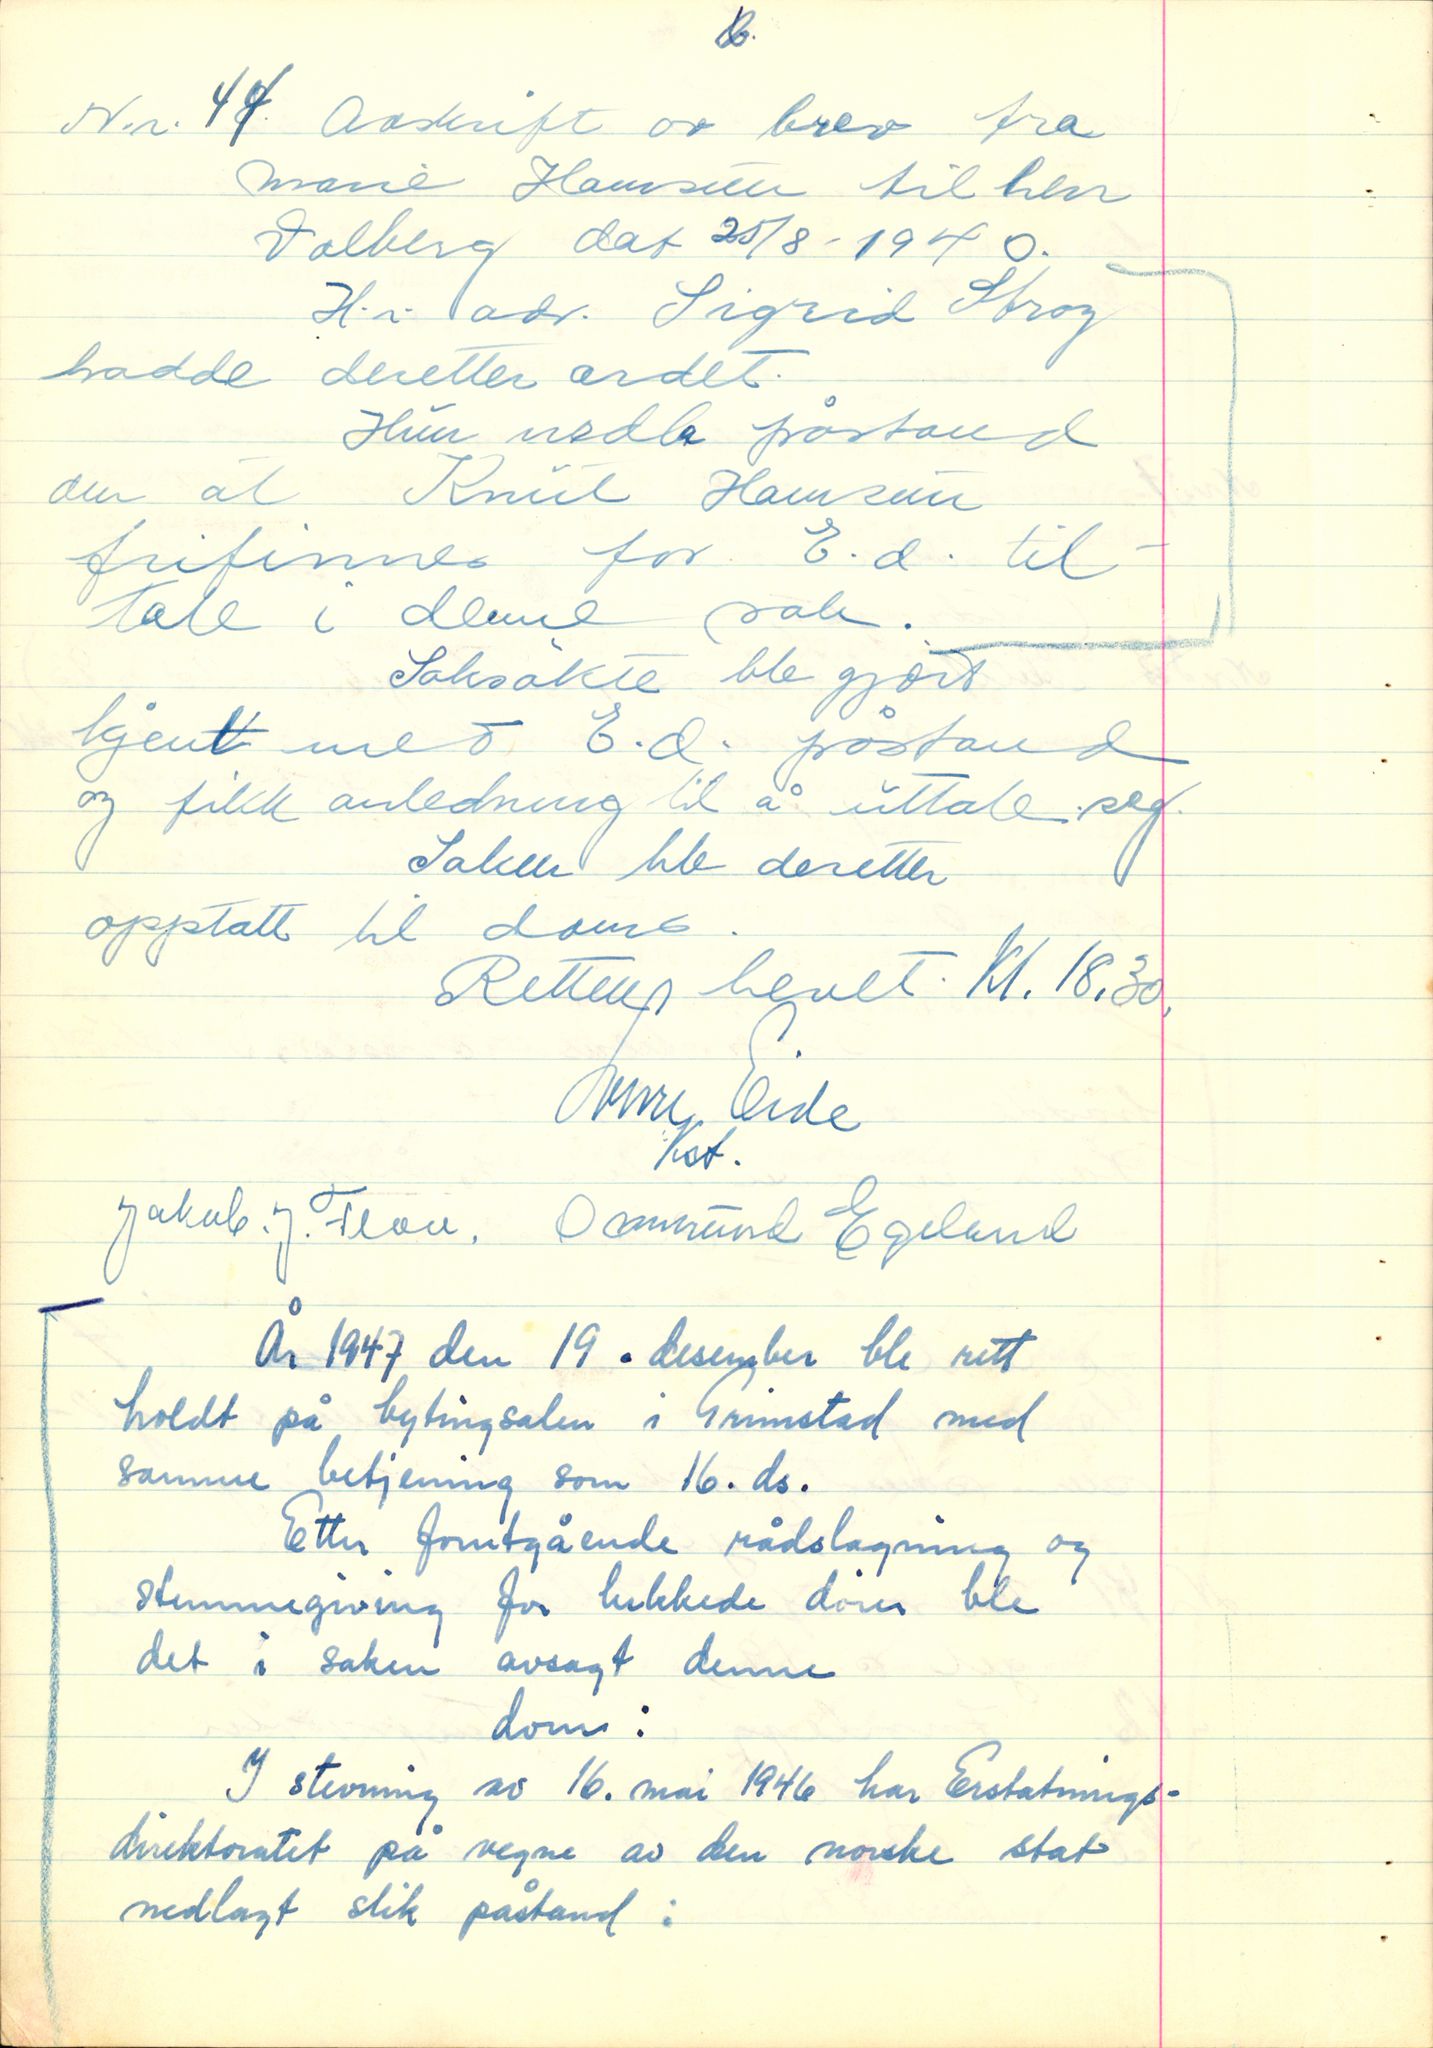 N.r. 44. Avskrift av brev fra
Marie Hamsun til herr
Dalberg dat 25/8 - 1940.
H.r. adv. Sigrid Stray
hadde deretter ordet.
Hun nedla påstand
om at Knut Hamsun
frifinnes for E.d. til-
tale i denne sak.
Saksøkte ble gjort
kjent med E.d. påstand
og fikk anledning til å uttale seg.
Saken ble deretter
opptatt til doms.
Retten hevet. Kl. 18,30.
Sverre Eide
Kst.
Jakob. J. Flaa. Omund Egeland
År 1947 den 19. desember ble rett
holdt på bytingsalen i Grimstad med
samme betjening som 16. ds.
Etter forutgående rådslagning og
stemmegiving for lukkede dører ble
det i saken avsagt denne
dom:
I stevning av 16. mai 1946 har Erstatnings-
direktoratet på vegne av den norske stat
nedlagt slik påstand: